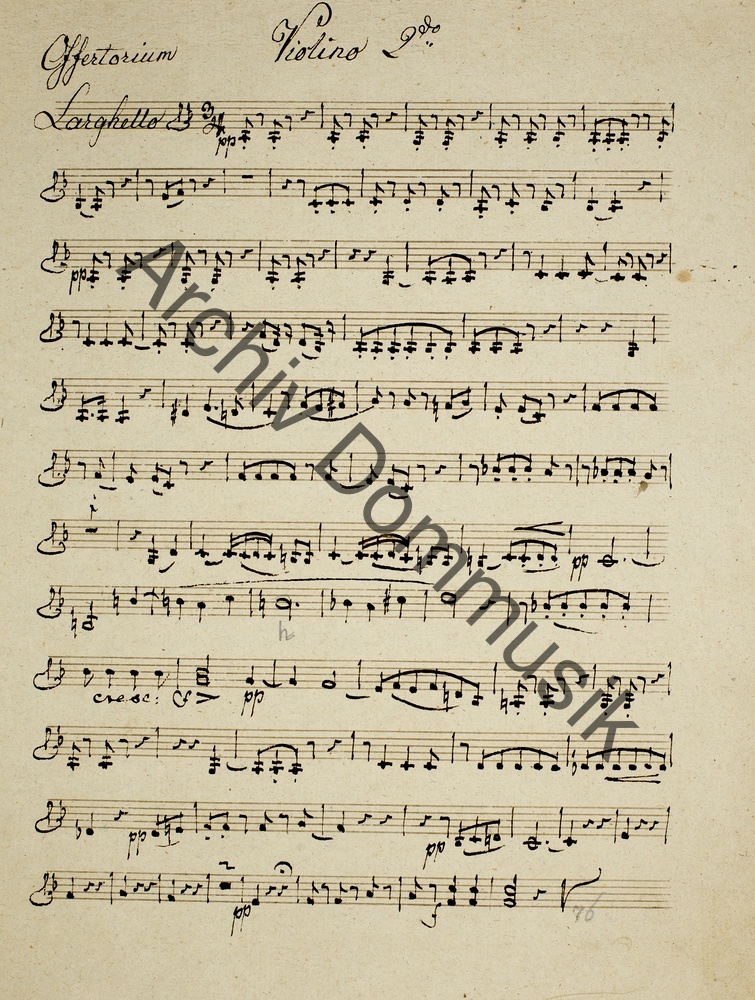 Offertorium
Violino 2do
Larghetto 3/4
pp
pp
pp
h
cresc: pp
pp pp
pp f
76
Archiv Dommusik